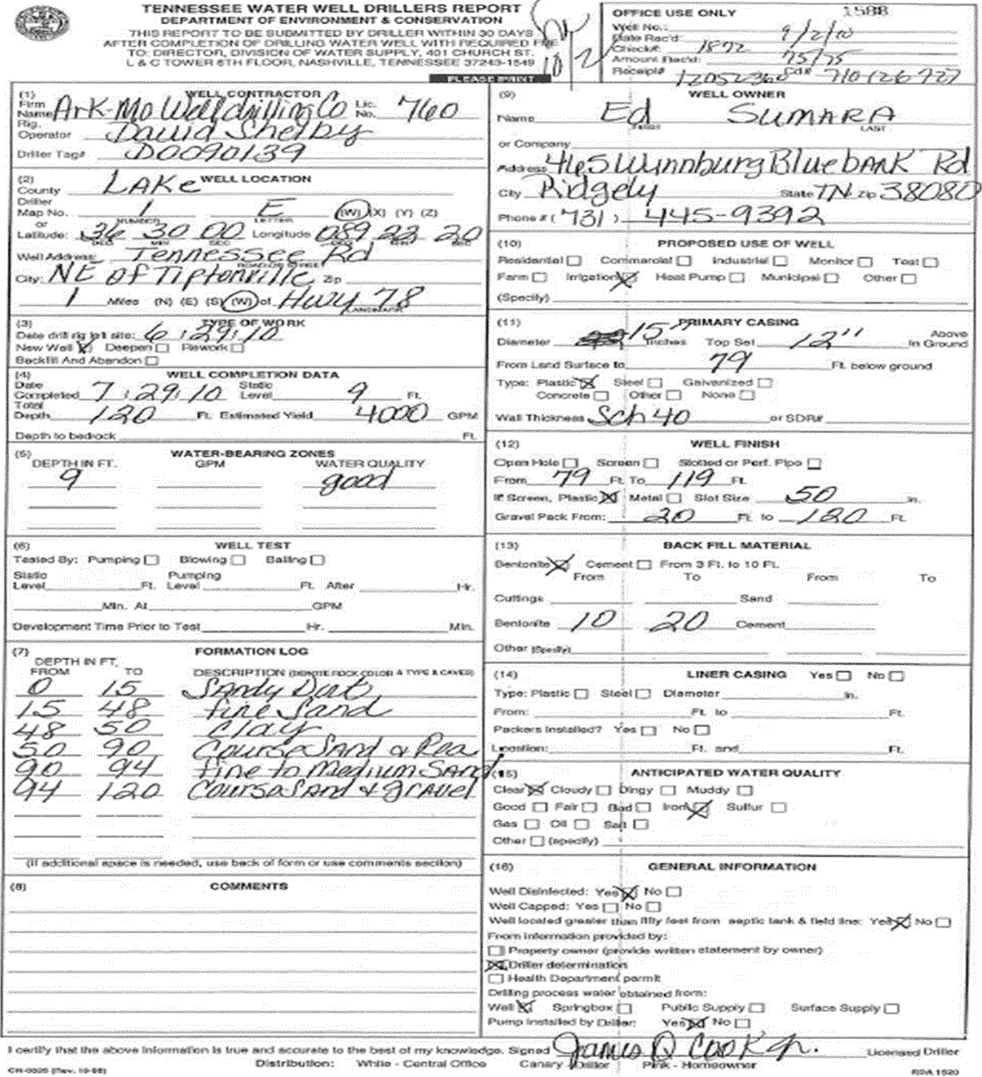 TENNESSEE WATER WELL DRILLERS REPORT
DEPARTMENT OF ENVIRONMENT & CONSERVATION
THIS REPORT TO BE SUBMITTED BY DRILLER WITHIN 30 DAYS
AFTER COMPLETION OF DRILLING WATER WELL WITH REQUIRED FEE
TO: DIRECTOR, DIVISION OF WATER SUPPLY, 401 CHURCH ST.
L & C TOWER 6TH FLOOR, NASHVILLE, TENNESSEE 37243-1549
PLEASE PRINT
OFFICE USE ONLY 1588
Well No.:
Date Rec'd: 9/2/10
Check#: 1872
Amount Rec'd: 75/75
Receipt# 12052360 Cd# 710126727
(1) WELL CONTRACTOR
Firm Name Ark-Mo Welldrilling Co Lic. No. 760
Rig. Operator David Shelby
Driller Tag# D0090139
(2) WELL LOCATION
County LAKe
Driller Map No. 1 E (W) (X) (Y) (Z)
NUMBER LETTER
or
Latitude: 36 30 00 Longitude 089 22 20
DEG MIN SEC DEG MIN SEC
Well Address: Tennessee Rd
ROAD OR STREET
City: NE of Tiptonville Zip
1 Miles (N) (E) (S) (W) of Hwy 78
LANDMARK
(3) TYPE OF WORK
Date drill rig left site: 6:29:10
New Well Deepen Rework
Backfill And Abandon
(4) WELL COMPLETION DATA
Date Completed 7:29:10 Static Level 9 Ft.
Total Depth 120 Ft. Estimated Yield 4000 GPM
Depth to bedrock Ft.
(5) WATER-BEARING ZONES
DEPTH IN FT. GPM WATER QUALITY
9 good
(6) WELL TEST
Tested By: Pumping Blowing Bailing
Static Level Ft. Pumping Level Ft. After Hr.
Min. At GPM
Development Time Prior to Test Hr. Min.
(7) FORMATION LOG
DEPTH IN FT.
FROM TO DESCRIPTION (DENOTE ROCK COLOR & TYPE & CAVES)
0 15 Sandy Dirt
15 48 fine Sand
48 50 Clay
50 90 Course Sand & Pea
90 94 fine to Medium Sand
94 120 Course Sand & gravel
(If additional space is needed, use back of form or use comments section)
(8) COMMENTS
(9) WELL OWNER
Name Ed SUMARA
FIRST LAST
or Company
Address 465 Wynnburg Bluebank Rd
City Ridgely State TN Zip 38080
Phone # (731) 445-9392
(10) PROPOSED USE OF WELL
Residential Commercial Industrial Monitor Test
Farm Irrigation Heat Pump Municipal Other
(Specify)
(11) PRIMARY CASING
Diameter 15" Inches Top Set 12" Above In Ground
From Land Surface to 79 Ft. below ground
Type: Plastic Steel Galvanized
Concrete Other None
Wall Thickness Sch 40 or SDR#
(12) WELL FINISH
Open Hole Screen Slotted or Perf. Pipe
From 79 Ft. To 119 Ft.
If Screen, Plastic Metal Slot Size 50 In.
Gravel Pack From: 20 Ft. to 120 Ft.
(13) BACK FILL MATERIAL
Bentonite Cement From 3 Ft. to 10 Ft.
From To From To
Cuttings Sand
Bentonite 10 20 Cement
Other (Specify)
(14) LINER CASING Yes No
Type: Plastic Steel Diameter In.
From: Ft. to Ft.
Packers Installed? Yes No
Location: Ft. and Ft.
(15) ANTICIPATED WATER QUALITY
Clear Cloudy Dingy Muddy
Good Fair Bad Iron Sulfur
Gas Oil Salt
Other (specify)
(16) GENERAL INFORMATION
Well Disinfected: Yes No
Well Capped: Yes No
Well located greater than fifty feet from septic tank & field line: Yes No
From information provided by:
Property owner (provide written statement by owner)
Driller determination
Health Department permit
Drilling process water obtained from:
Well Springbox Public Supply Surface Supply
Pump Installed by Driller: Yes No
I certify that the above information is true and accurate to the best of my knowledge. Signed James Q Cook Jr. Licensed Driller
CN-0825 (Rev. 10-98) Distribution: White - Central Office Canary - Driller Pink - Homeowner RDA 1520